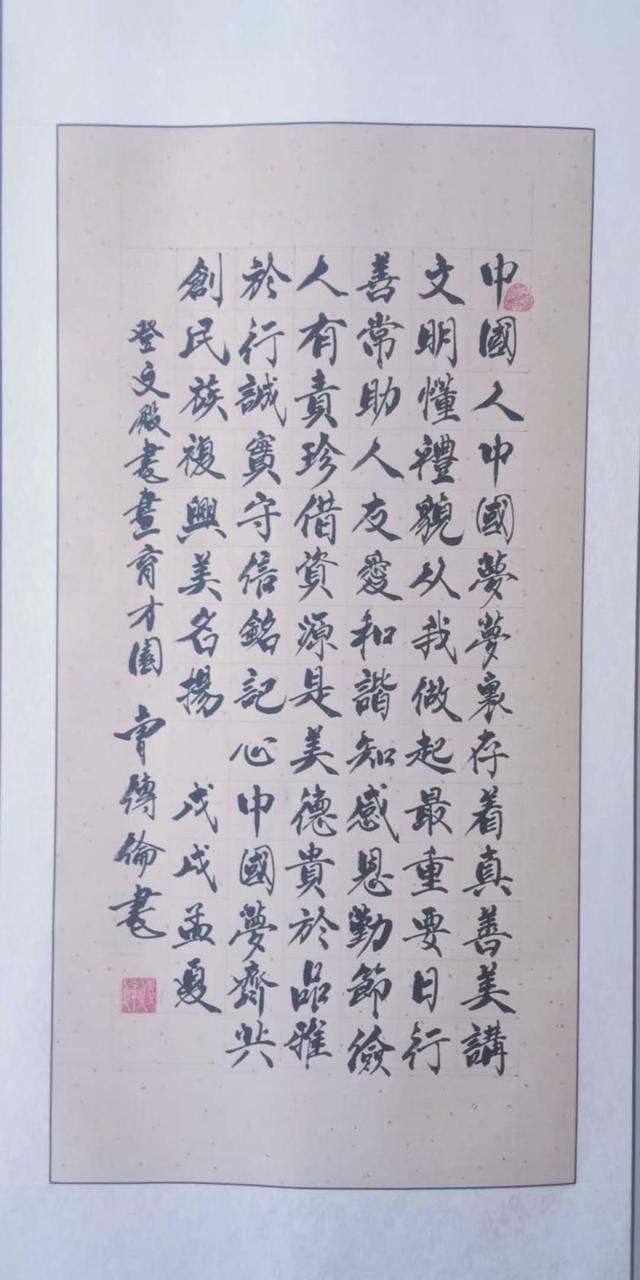 中國人中國夢夢裏存着真善美講
文明懂禮貌从我做起最重要日行
善常助人友愛和諧知感恩勤節儉
人有責珍借資源是美德貴於品雅
於行誠實守信銘記心中國夢齊共
創民族複興美名揚 戊戌孟夏
登文殿書畫育才園 曹傳倫書